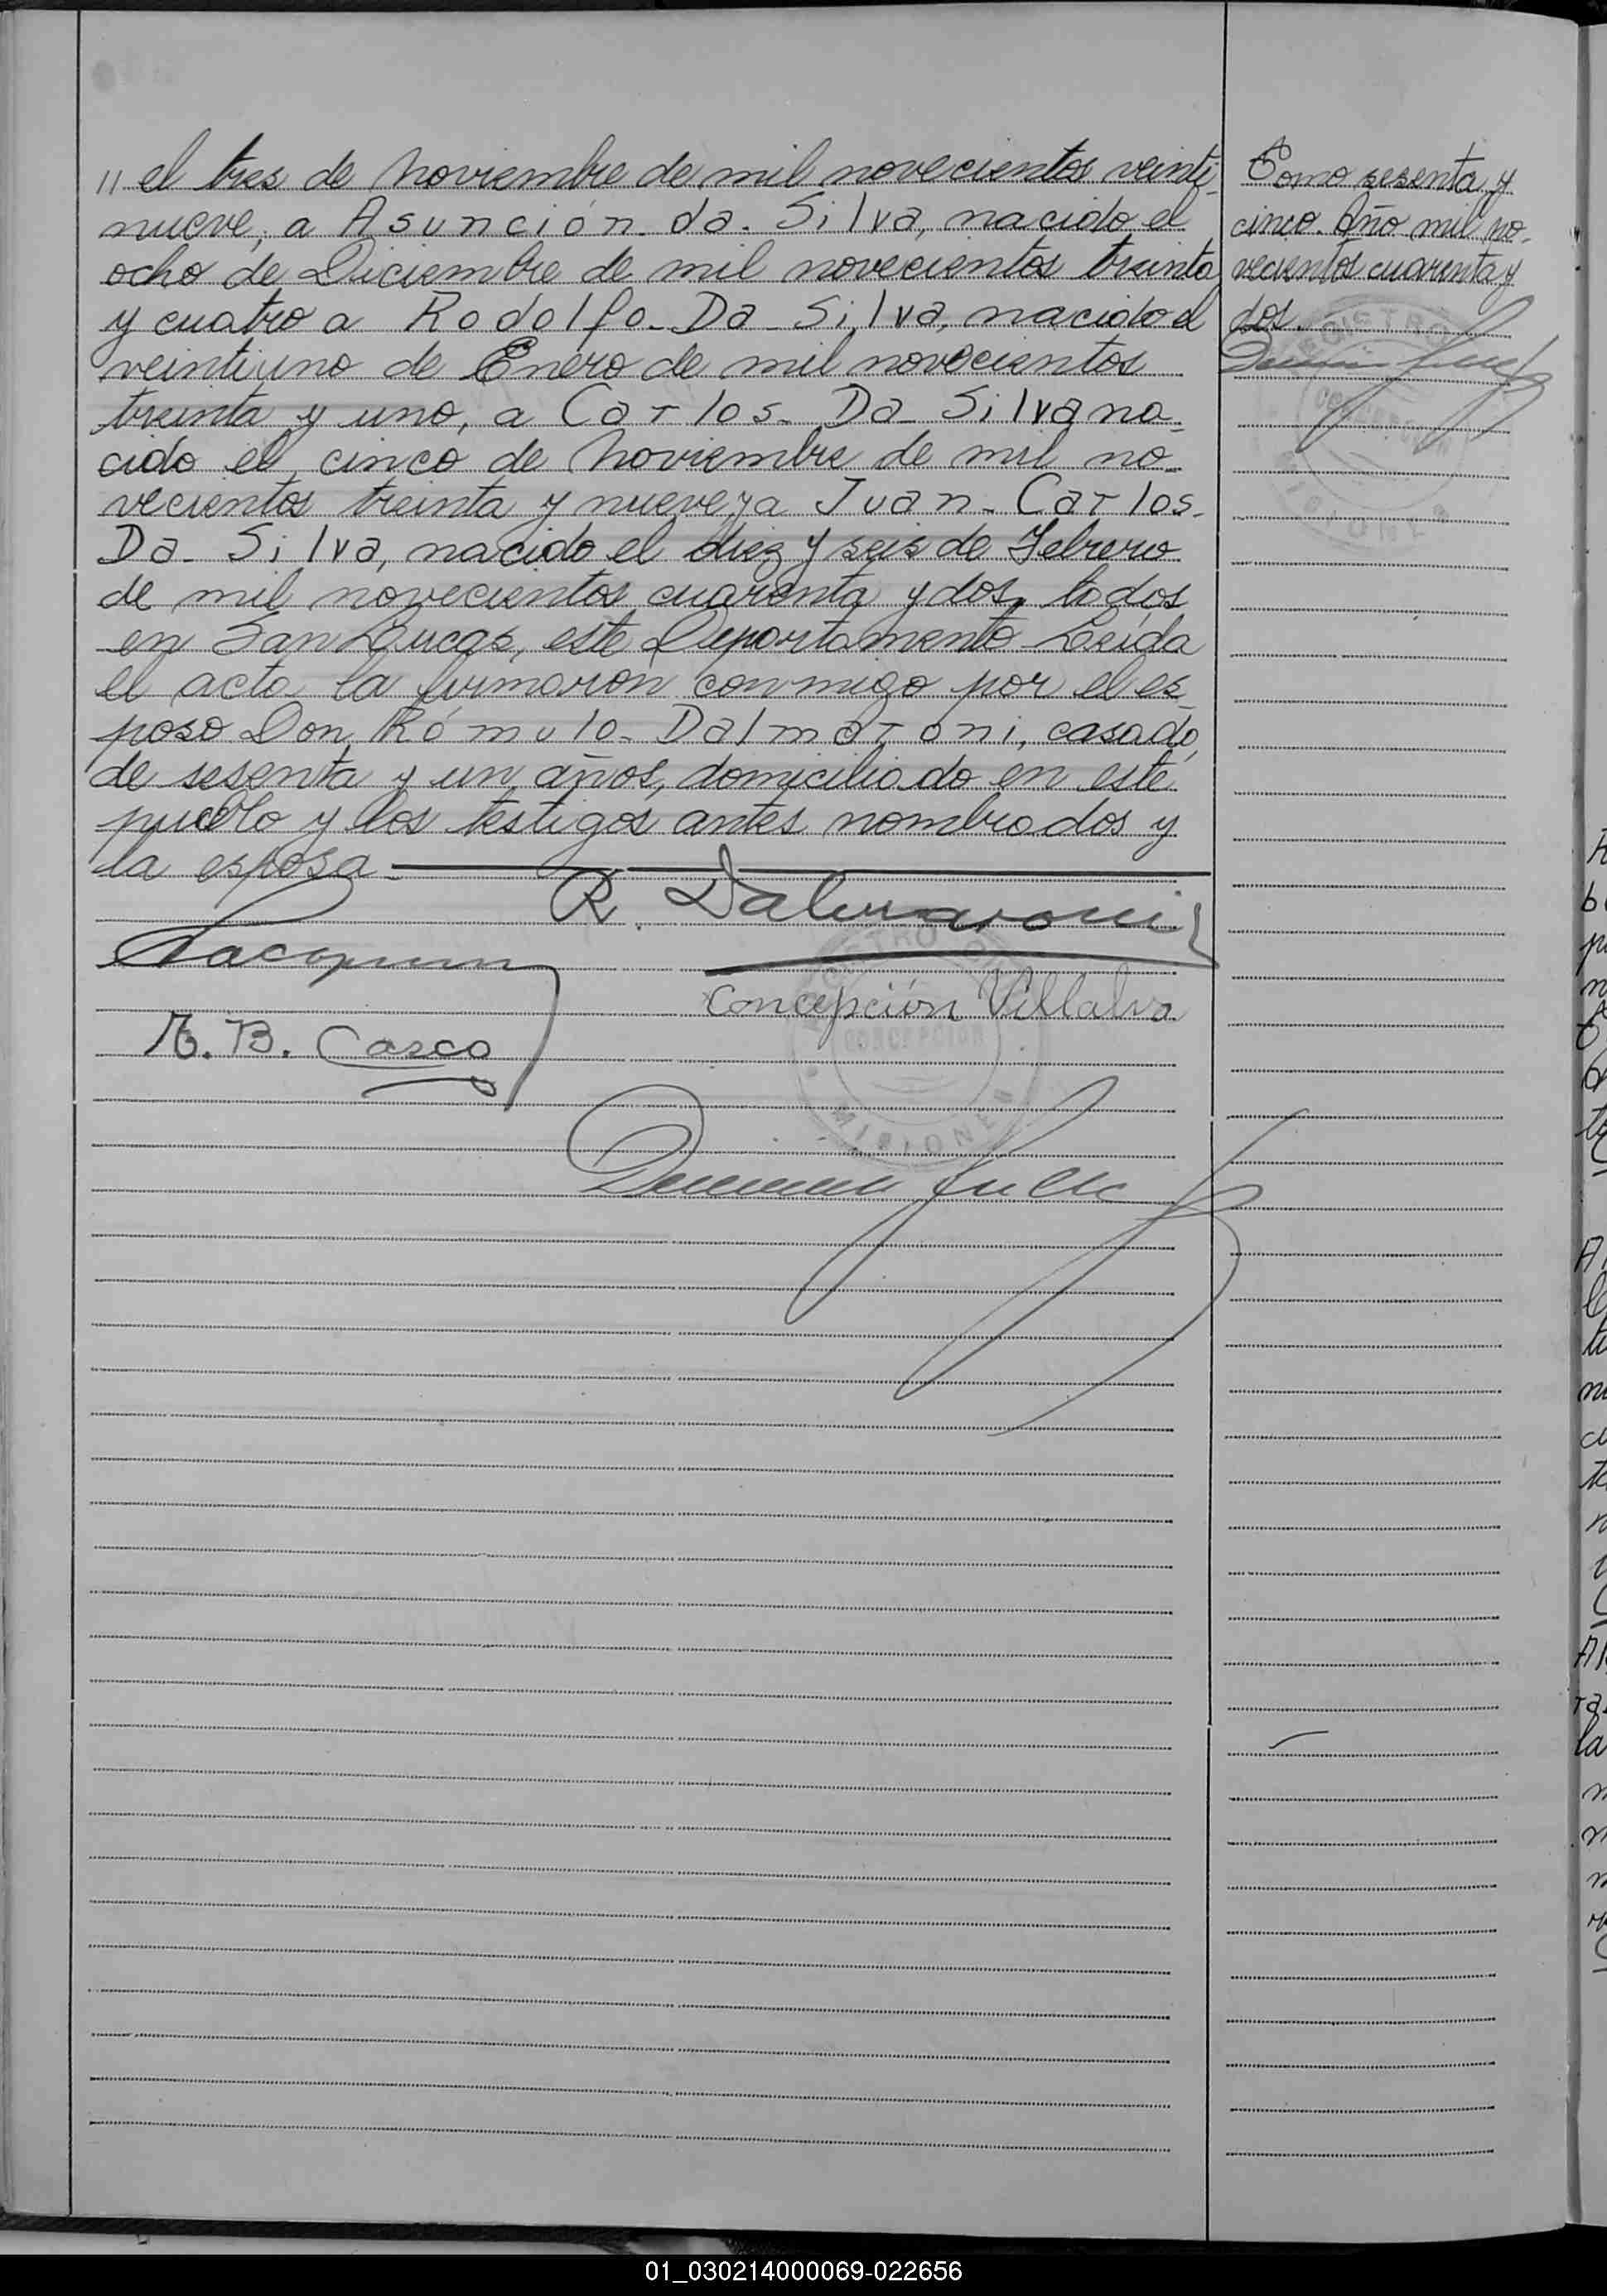 " el tres de Noviembre de mil novecientos veinti-
nueve, a Asunción da Silva, nacido el
ocho de Diciembre de mil novecientos treinta
y cuatro a Rodolfo Da Silva, nacido el
veintiuno de Enero de mil novecientos
treinta y uno, a Carlos Da Silva na-
cido el cinco de Noviembre de mil no-
vecientos treinta y nueve, y a Juan Carlos
Da Silva, nacido el diez y seis de Febrero
de mil novecientos cuarenta y dos, todos
en San Lucas, este Departamento. Leída
el acta la firmaron conmigo por el es-
poso Don Rómulo Dalmaroni, casado,
de sesenta y un años, domiciliado en este
pueblo y los testigos antes nombrados y
la esposa.
R. Dalmaroni
Concepción Villalva
M. B. Casco
REGISTRO
CONCEPCION
MISIONES
Tomo sesenta y
cinco. Año mil no-
vecientos cuarenta y
dos.
REGISTRO
CONCEPCION
MISIONES
01_030214000069-022656